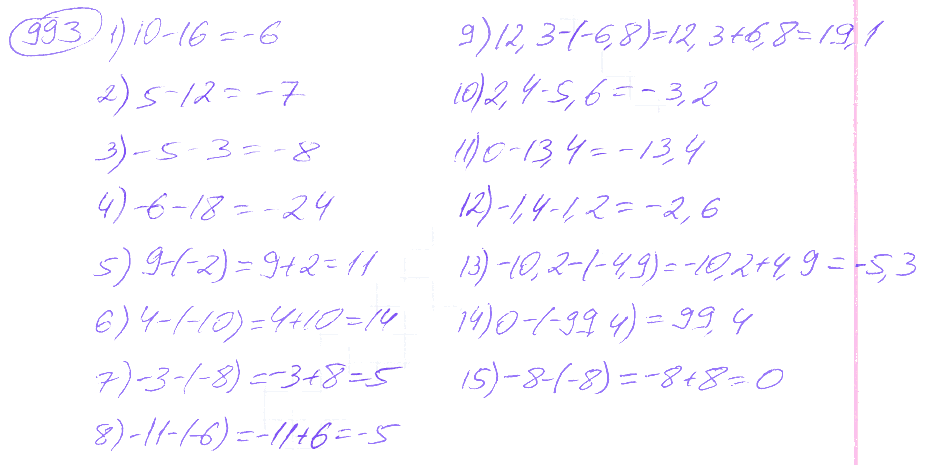 993 1) 10-16=-6
2) 5-12=-7
3) -5-3=-8
4) -6-18=-24
5) 9-(-2)=9+2=11
6) 4-(-10)=4+10=14
7) -3-(-8)=-3+8=5
8) -11-(-6)=-11+6=-5
9) 12,3-(-6,8)=12,3+6,8=19,1
10) 2,4-5,6=-3,2
11) 0-13,4=-13,4
12) -1,4-1,2=-2,6
13) -10,2-(-4,9)=-10,2+4,9=-5,3
14) 0-(-99,4)=99,4
15) -8-(-8)=-8+8=0